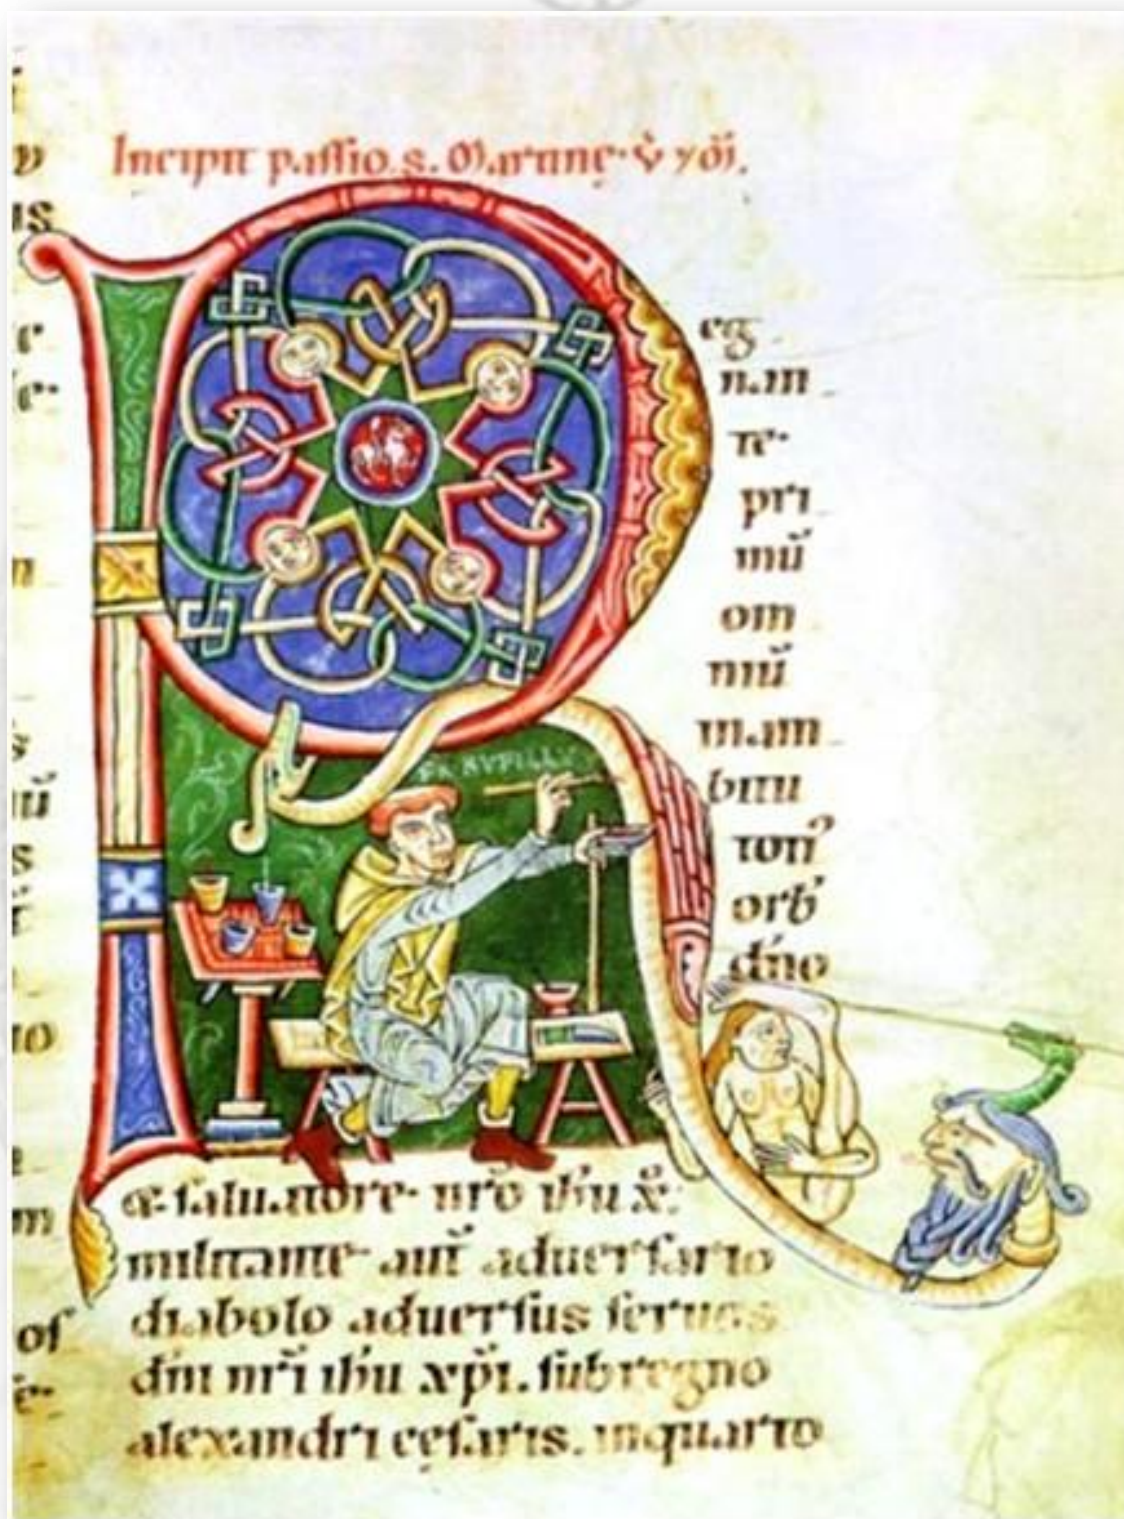 Incipit passio. s. Martinę.
R
eg
nan
te.
pri
mū
om
niū
in am
bitu
toti᾽
orb᾽
dn̄o
FR RVFILLVS
& saluatore. nr̄o ih̄u x̄.
militante aut̄ aduersario
diabolo aduersus seruos
dn̄i nr̄i ih̄u xp̄i. sub regno
alexandri cęsaris. in quarto